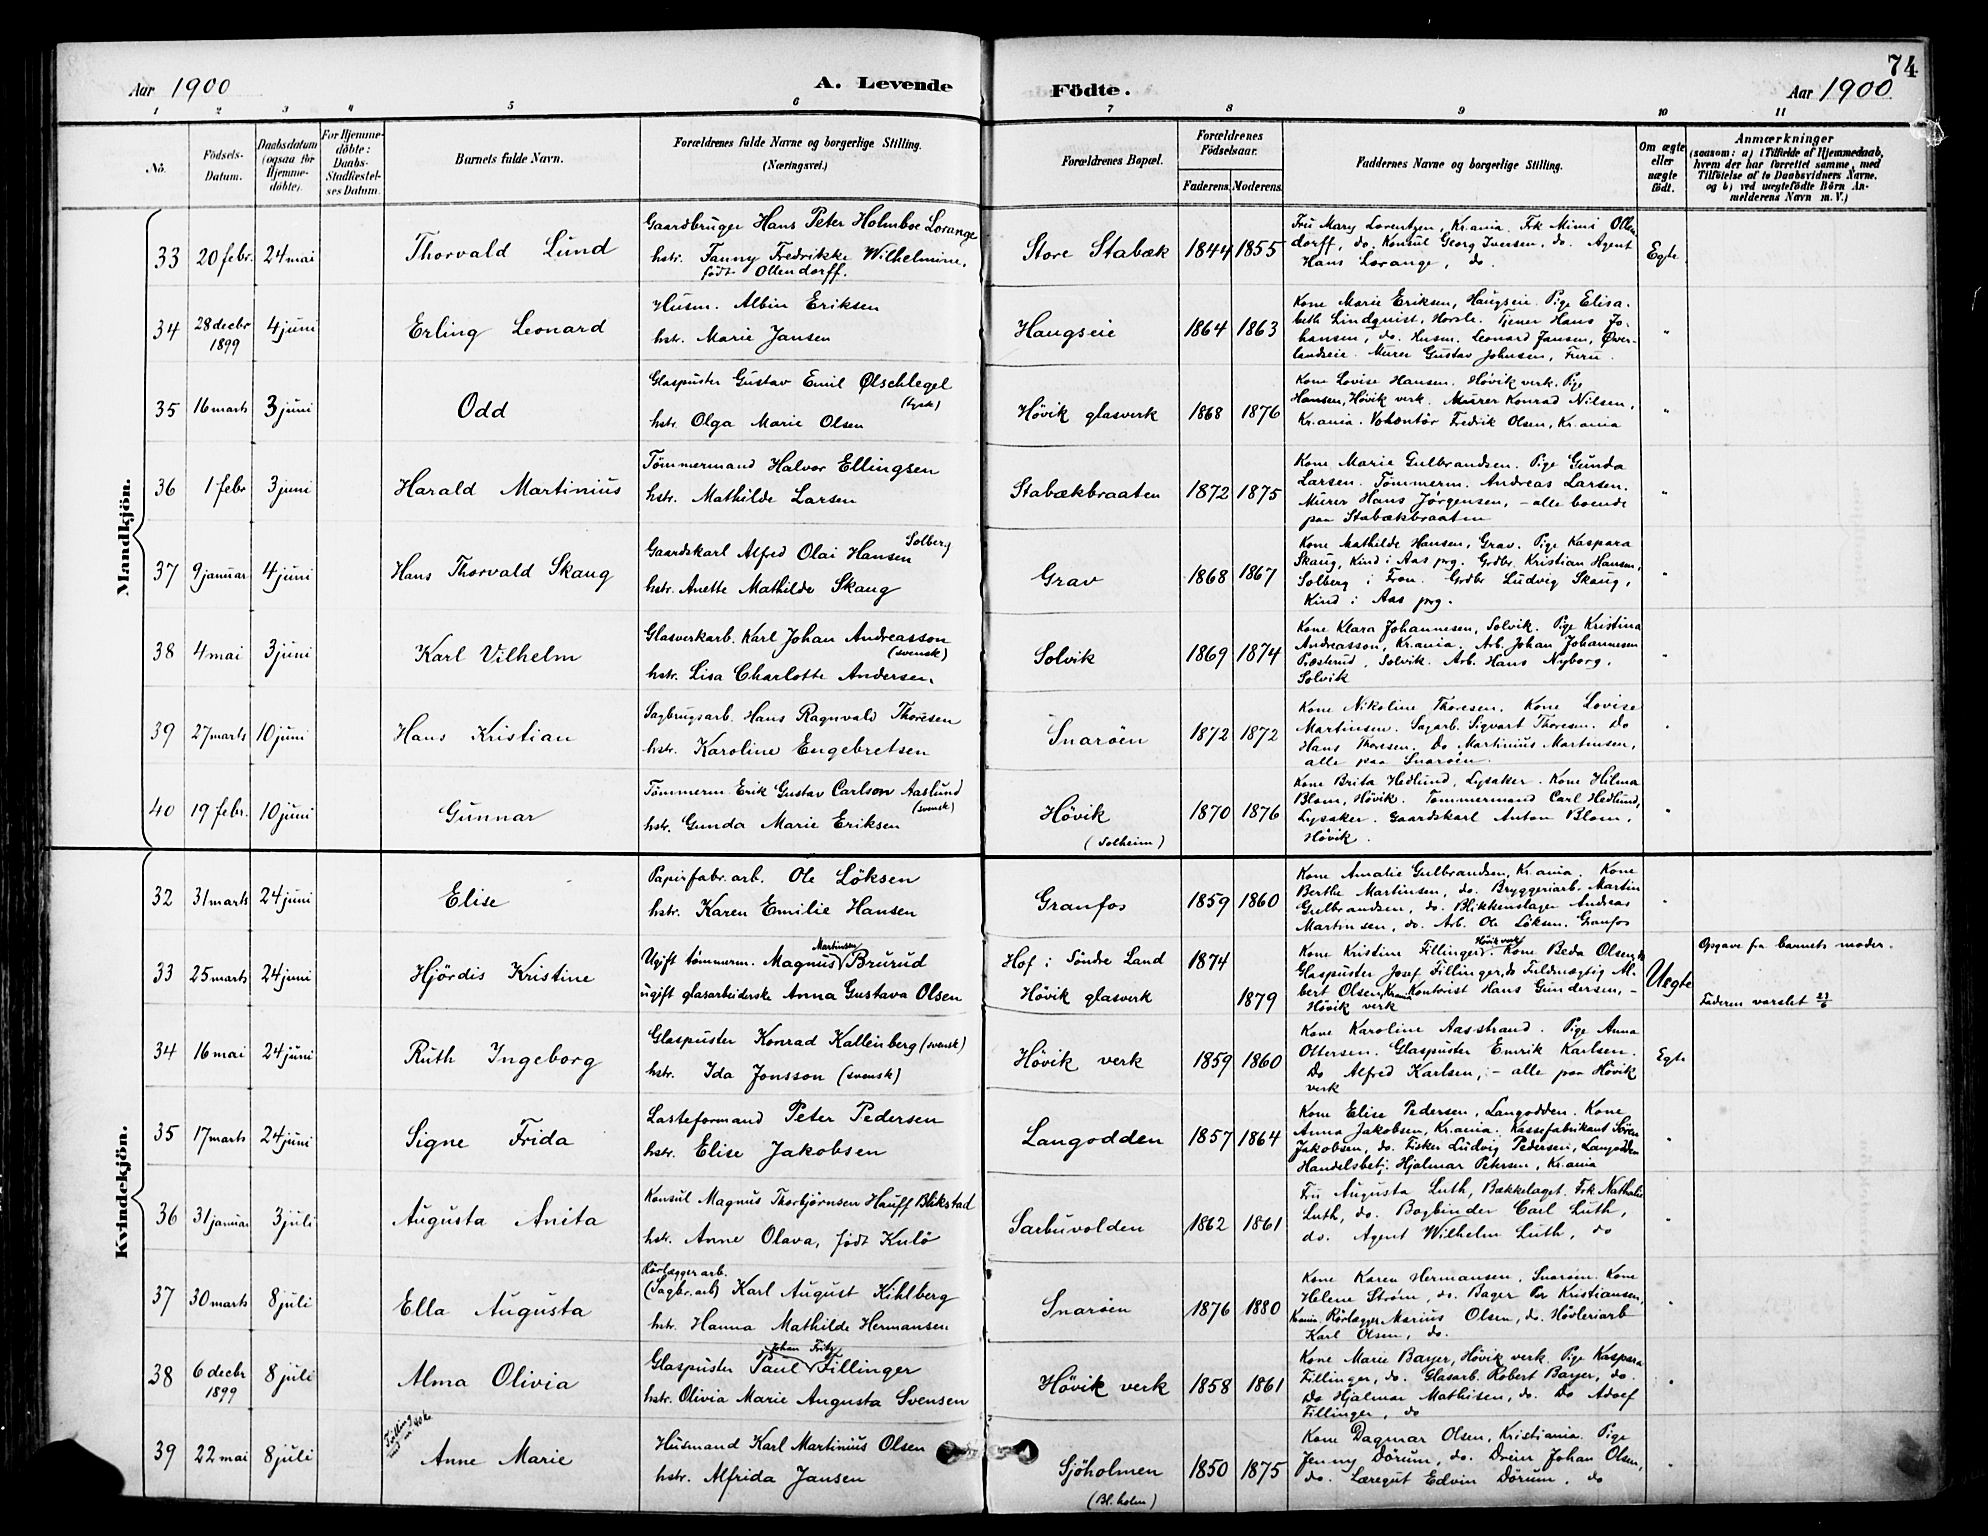 74
Aar 1900 A. Levende Födte. Aar 1900
1 2 3 4 5 6 7 8 9 10 11
No. Födsels-Datum. Daabsdatum (ogsaa for Hjemmedöbte). For Hjemmedöbte: Daabs-Stadfæstelses Datum. Barnets fulde Navn. Forældrenes fulde Navne og borgerlige Stilling. (Næringsvei.) Forældrenes Bopæl. Forældrenes Födselsaar. Faderens. Moderens. Faddernes Navne og borgerlige Stilling. Om ægte eller uægte födt. Anmærkninger (saasom: a) i Tilfælde af Hjemmedaab, hvem der har forrettet samme, med Tilföielse af to Daabsvidners Navne, og b) ved uægtefödte Börn Anmelderens Navn m. V.)
Mandkjön.
33 20 febr. 24 mai Thorvald Lund
Gaardbruger Hans Peter Holmboe Lorange
hstr. Fanny Fredrikke Wilhelmine,
født Ollendorff.
Store Stabæk 1844 1855
Fru Mary Lorentzen, Kr.ania. Frk Mimi Ollen
dorff, do. Konsul Georg Iversen, do. Agent
Hans Lorange, do.
Egte
34 28 decbr 1899 4 juni Erling Leonard
Husm. Albin Eriksen
hstr. Marie Jansen
Haugseie 1864 1863
Kone Marie Eriksen, Haugseie. Pige Elisa-
beth Lindquist, Horsle. Tjener Hans Jo-
hansen, do. Husm. Leonard Jansen, Øver-
landseie. Murer Gustav Johnsen, Furu.
"
35 16 marts 3 juni Odd
Glaspuster Gustav Emil Ølschlegel
(tysk)
hstr. Olga Marie Olsen
Høvik glasverk 1868 1876
Kone Lovise Hansen. Høvik verk. Pige
Hansen, Høvik verk. Murer Konrad Nilsen,
Kr.ania. Volontør Fredrik Olsen, Kr.ania
"
36 1 febr 3 juni Harald Martinius
Tømmermand Halvor Ellingsen
hstr. Mathilde Larsen
Stabækbraaten 1872 1875
Kone Marie Gulbrandsen. Pige Gunda
Larsen. Tømmerm. Andreas Larsen.
Murer Hans Jørgensen, - alle boende
paa Stabækbraaten
"
37 9 januar 4 juni Hans Thorvald Skaug
Solberg
Gaardskarl Alfred Olai Hansen
hstr. Anette Mathilde Skaug
Grav 1868 1867
Kone Mathilde Hansen, Grav. Pige Kaspara
Skaug, Kind i Aas prg. Grdbr. Kristian Hansen,
Solberg i Fron. Grdbr Ludvig Skaug,
Kind i Aas prg.
"
38 4 mai 3 juni Karl Vilhelm
Glasverkarb. Karl Johan Andreasson
(svensk)
hstr. Lisa Charlotte Andersen.
Solvik 1869 1874
Kone Klara Johannesen, Solvik. Pige Kristina
Andreasson, Kr.ania. Arb. Johan Johannesen
Præsterud, Solvik. Arb. Hans Nyborg,
Solvik
"
39 27 marts 10 juni Hans Kristian
Sagbrugsarb. Hans Ragnvald Thoresen
hstr. Karoline Engebretsen
Snarøen 1872 1872
Kone Nikoline Thoresen. Kone Lovise
Martinsen. Sagarb. Sigvart Thoresen. Do
Hans Thoresen. Do Martinius Martinsen,
alle paa Snarøen.
"
40 19 febr. 10 juni Gunnar
Tømmerm. Erik Gustav Carlson Aaslund
(svensk)
hstr. Gunda Marie Eriksen
Høvik 1870 1876
(Solheim)
Kone Brita Hedlund, Lysaker. Kone Hilma
Blom, Høvik. Tømmermand Carl Hedlund,
Lysaker. Gaardskarl Anton Blom,
Høvik.
"
Kvindekjön.
32 31 marts 24 juni Elise
Papirfabr.arb. Ole Löksen
hstr. Karen Emilie Hansen
Granfos 1859 1860
Kone Amalie Gulbrandsen, Kr.ania. Kone
Berthe Martinsen, do. Bryggeriarb. Martin
Gulbrandsen, do. Blikkenslager Andreas
Martinsen, do. Arb. Ole Löksen. Granfos
"
33 25 marts 24 juni Hjördis Kristine
Martinsen
Ugift tømmerm. Magnus Brurud
ugift glasarbeiderske Anna Gustava Olsen
Hof i Søndre Land 1874
Høvik glasverk 1879
Høvik verk
Kone Kristine Fillinger. Kone Beda Olsen, do
Glaspuster Josef Fillinger, do Fuldmægtig Al-
bert Olsen, Krania Kontorist Hans Gundersen, -
Høvik verk
Uegte
Opgave fra barnets moder.
Faderen varslet 23/6
34 16 mai 24 juni Ruth Ingeborg
Glaspuster Konrad Kallenberg (svensk)
hstr. Ida Jonsson (svensk)
Høvik verk 1859 1860
Kone Karoline Aasstrand. Pige Anna
Ottersen. Glaspuster Emrik Karlsen.
Do Alfred Karlsen, - alle paa Høvik
verk
Egte
35 17 marts 24 juni Signe Frida
Lasteformand Peter Pedersen
hstr. Elise Jakobsen
Langodden 1857 1864
Kone Elise Pedersen, Langodden. Kone
Anna Jakobsen, Kr.ania. Kassefabrikant Søren
Jakobsen, do. Fisker Ludvig Pedersen, Langodden
Handelsbetj. Hjalmar Petersen, Kr.ania
"
36 31 januar 3 juli Augusta Anita
Konsul Magnus Thorbjørnsen Hauff Blikstad
hstr. Anne Olava, født Kulö
Sarbuvolden 1862 1861
Fru Augusta Luth, Bækkelaget. Frk Nathalie
Luth, do. Bogbinder Carl Luth,
do. Agent Wilhelm Luth, do
"
37 30 marts 8 juli Ella Augusta
Rörlæggerarb.
(Sagbr.arb) Karl August Kihlberg
hstr. Hanna Mathilde Hermansen
Snarøen 1876 1880
Kone Karen Hermansen, Snarøen. Kone
Helene Strøm, do. Bager Per Kristiansen,
Krania. Rörlægger Marius Olsen, do. Høvleriarb
Karl Olsen, do.
"
38 6 decbr 1899 8 juli Alma Olivia
Johan Fritz
Glaspuster Paul Fillinger
hstr. Olivia Marie Augusta Svensen
Høvik verk 1858 1861
Kone Marie Bayer, Høvik verk. Pige Kaspara
Fillinger, do. Glasarb. Robert Bayer, do.
Do Hjalmar Mathisen, do. Do Adolf
Fillinger, do
"
39 22 mai 8 juli Anne Marie
Tvilling
Husmand Karl Martinius Olsen
hstr. Alfrida Jansen
Sjöholmen 1850 1875
(Bl.holm)
Kone Dagmar Olsen, Kristiania. Pige
Jenny Dörum, do. Dreier Johan Olsen,
do. Læregut Edvin Dörum, do
"